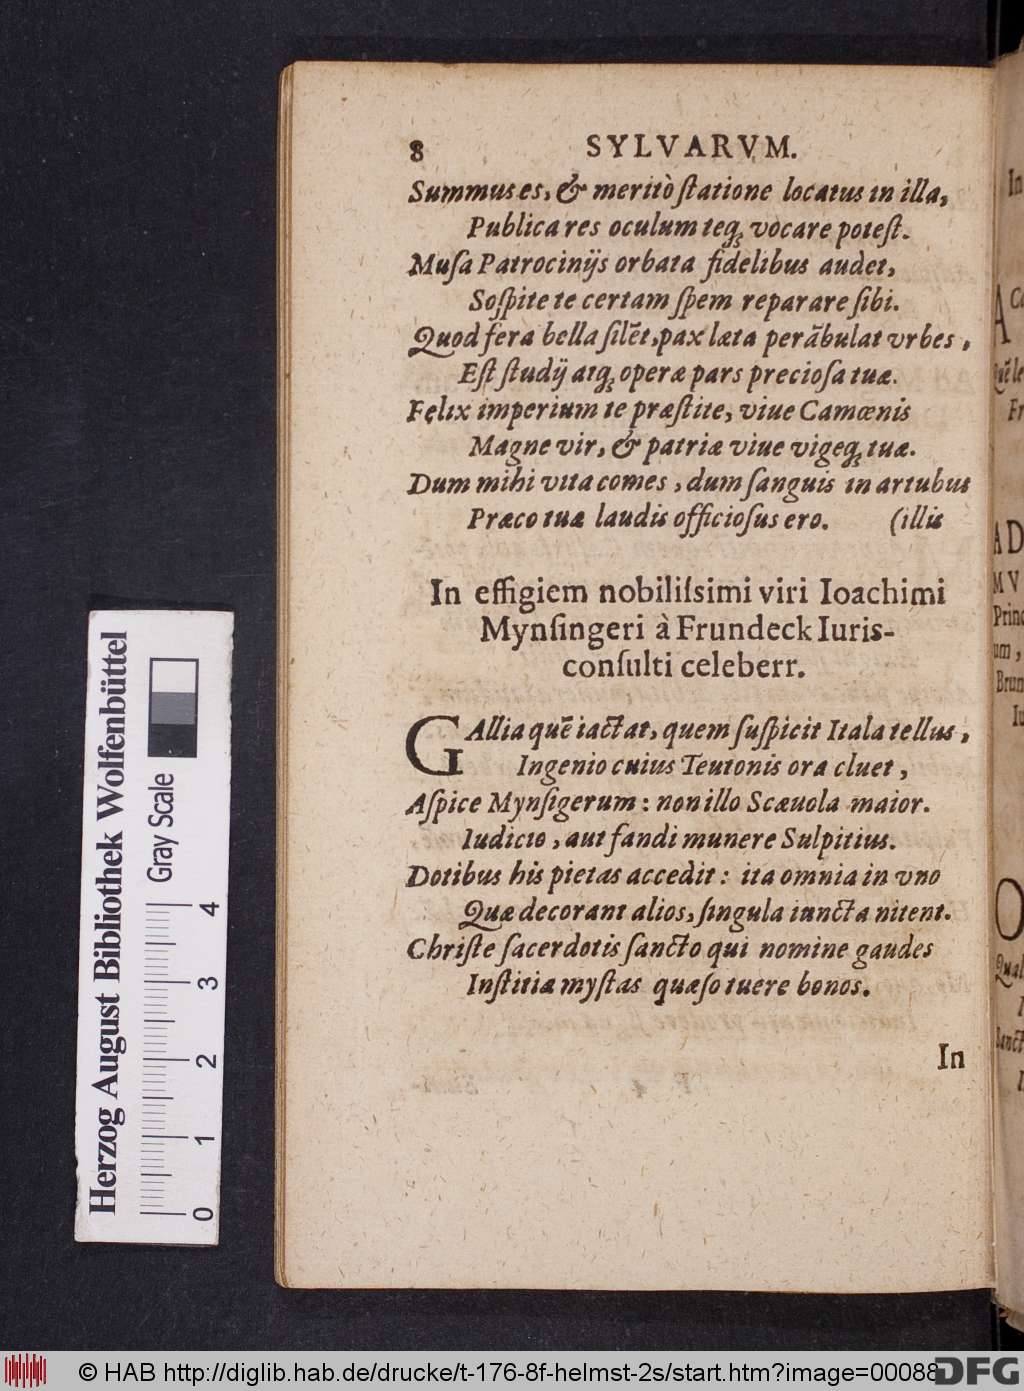 8 SYLVARVM.
Summus es, & meritò ſtatione locatus in illa,
Publica res oculum teq́; vocare poteſt.
Muſa Patrocinijs orbata fidelibus audet,
Soſpite te certam ſpem reparare ſibi.
Quod fera bella ſilēt, pax læta perābulat vrbes,
Eſt ſtudij atq́; operæ pars precioſa tuæ.
Felix imperium te præſtite, viue Camœnis
Magne vir, & patriæ viue vigeq́; tuæ.
Dum mihi vita comes, dum ſanguis in artubus
Præco tuæ laudis officioſus ero. (illis
In effigiem nobiliſsimi viri Ioachimi
Mynſingeri à Frundeck Iuris-
conſulti celeberr.
GAllia quē iactat, quem ſuſpicit Itala tellus,
Ingenio cuius Teutonis ora cluet,
Aſpice Mynſigerum: non illo Scæuola maior.
Iudicio, aut fandi munere Sulpitius.
Dotibus his pietas accedit: ita omnia in vno
Quæ decorant alios, ſingula iuncta nitent.
Chriſte ſacerdotis ſancto qui nomine gaudes
Iuſtitiæ myſtas quæſo tuere bonos.
In
Herzog August Bibliothek Wolfenbüttel
Gray Scale
0 1 2 3 4
© HAB http://diglib.hab.de/drucke/t-176-8f-helmst-2s/start.htm?image=00088
DFG